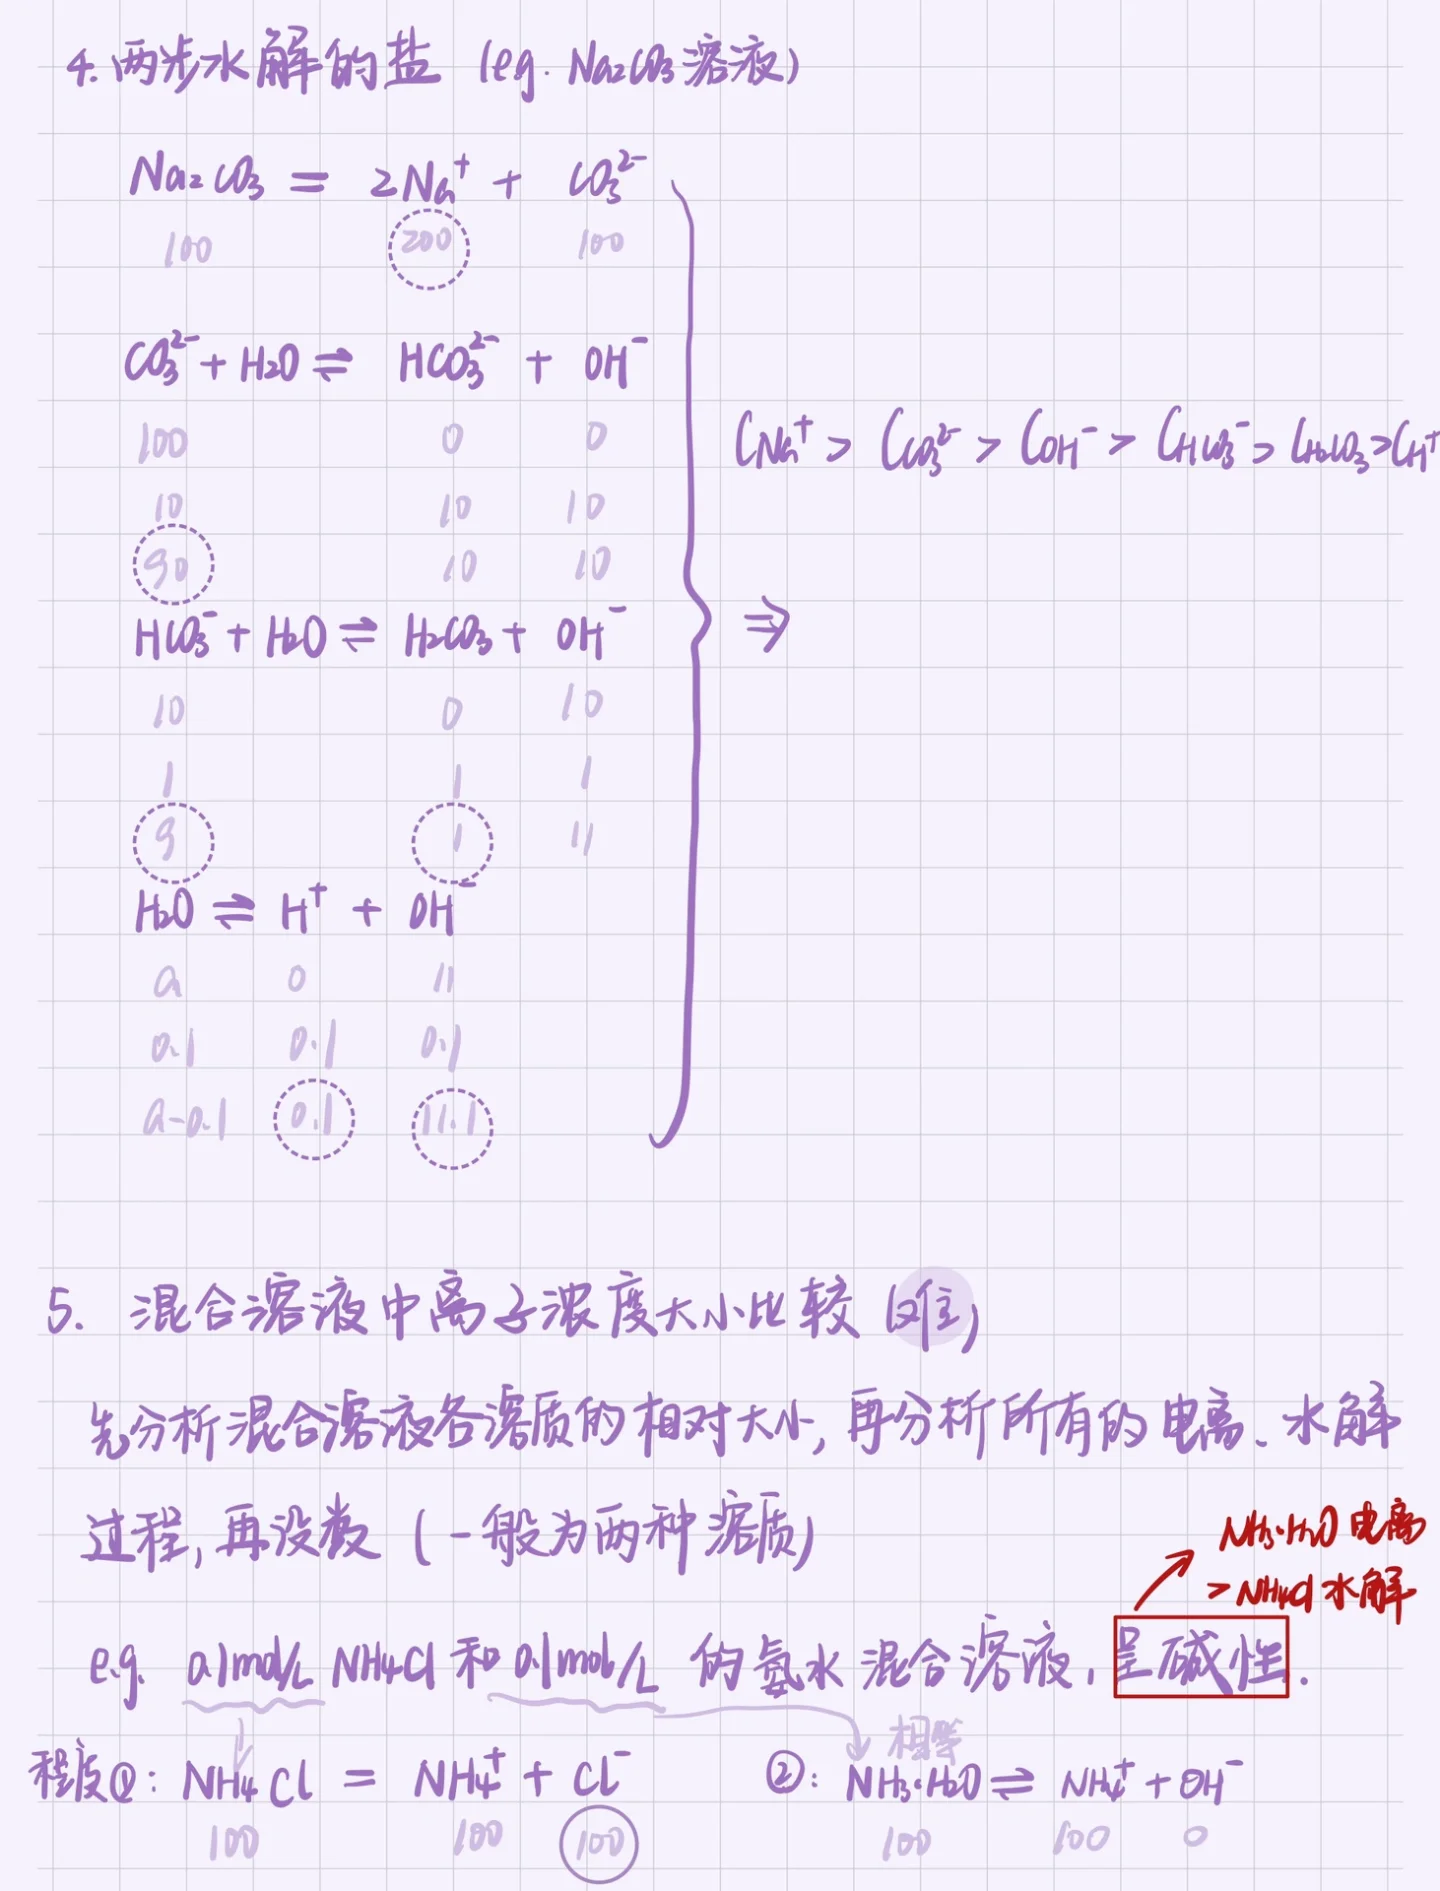 4. 两步水解的盐 (eg. Na₂CO₃溶液)
Na₂CO₃ = 2Na⁺ + CO₃²⁻
100 200 100
CO₃²⁻ + H₂O ⇌ HCO₃²⁻ + OH⁻
100 0 0
10 10 10
90 10 10
HCO₃⁻ + H₂O ⇌ H₂CO₃ + OH⁻
10 0 10
1 1 1
9 1 11
H₂O ⇌ H⁺ + OH⁻
a 0 11
0.1 0.1 0.1
a-0.1 0.1 11.1
CNa⁺ > CCO₃²⁻ > COH⁻ > CHCO₃⁻ > CH₂CO₃ > CH⁺
⇒
5. 混合溶液中离子浓度大小比较 (难)
先分析混合溶液各溶质的相对大小, 再分析所有的电离、水解
过程, 再设数 (一般为两种溶质)
NH₃·H₂O 电离
> NH₄Cl 水解
e.g. 0.1mol/L NH₄Cl 和 0.1mol/L 的氨水混合溶液, 呈碱性.
相等
程度①: NH₄Cl = NH₄⁺ + Cl⁻ ②: NH₃·H₂O ⇌ NH₄⁺ + OH⁻
100 100 100 100 100 0